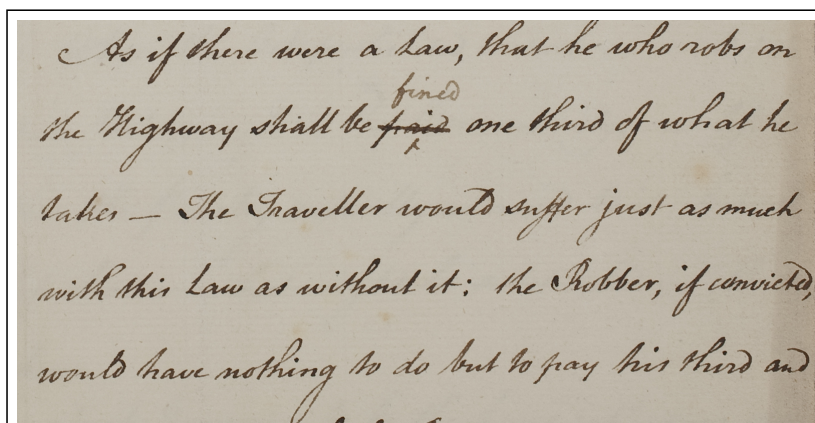 As if there were a Law, that he who robs on
fined
the Highway shall be paid one third of what he
takes — The Traveller would suffer just as much
with this Law as without it: the Robber, if convicted,
would have nothing to do but to pay his third and